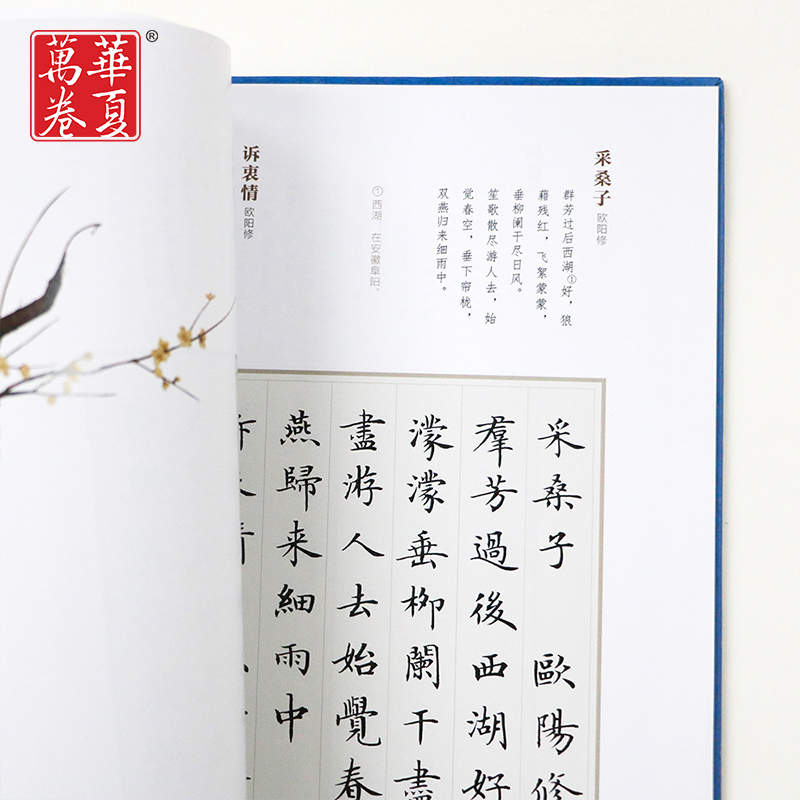 華夏
萬卷
®
采桑子 欧阳修
群芳过后西湖①好，狼
藉残红，飞絮蒙蒙，
垂柳阑干尽日风。
笙歌散尽游人去，始
觉春空，垂下帘栊，
双燕归来细雨中。
①西湖：在安徽阜阳。
诉衷情 欧阳修
采桑子 歐陽修
羣芳過後西湖好
濛濛垂柳闌干盡
盡游人去始覺春
燕歸来細雨中